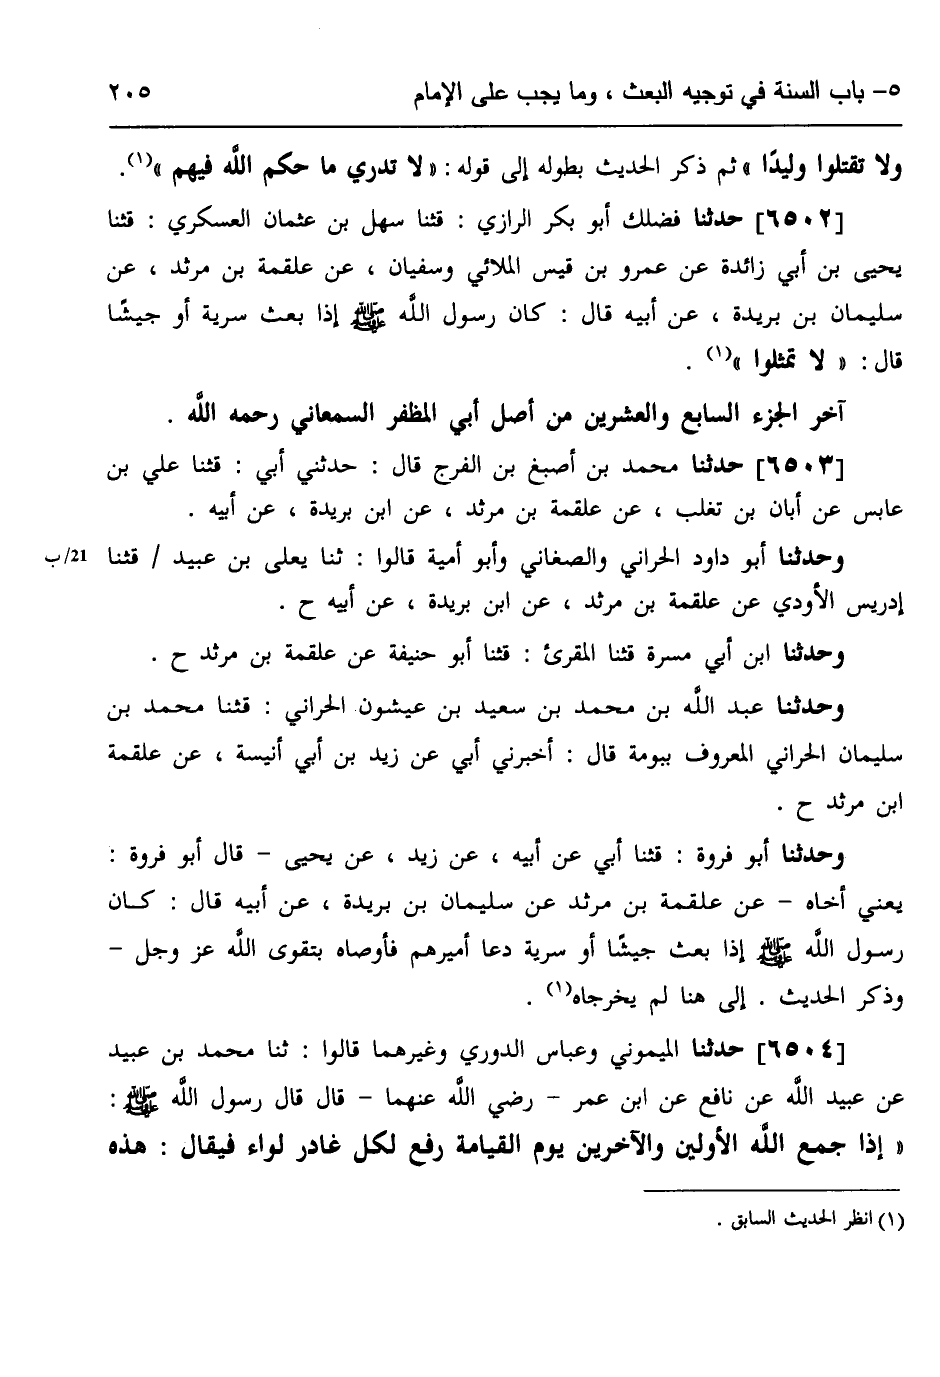 ٥- باب السنة في توجيه البعث ، وما يجب على الإمام ٢٠٥
ولا تقتلوا وليدًا » ثم ذكر الحديث بطوله إلى قوله : « لا تدري ما حكم اللَّه فيهم »(١).
[٦٥٠٢] حدثنا فضلك أبو بكر الرازي : قثنا سهل بن عثمان العسكري : قثنا
يحيى بن أبي زائدة عن عمرو بن قيس الملائي وسفيان ، عن علقمة بن مرثد ، عن
سليمان بن بريدة ، عن أبيه قال : كان رسول اللَّه ﷺ إذا بعث سرية أو جيشًا
قال : « لا تمثلوا »(١) .
آخر الجزء السابع والعشرين من أصل أبي المظفر السمعاني رحمه اللَّه .
[٦٥٠٣] حدثنا محمد بن أصبغ بن الفرج قال : حدثني أبي : قثنا علي بن
عابس عن أبان بن تغلب ، عن علقمة بن مرثد ، عن ابن بريدة ، عن أبيه .
وحدثنا أبو داود الحراني والصغاني وأبو أمية قالوا : ثنا يعلى بن عبيد / قثنا 21/ب
إدريس الأودي عن علقمة بن مرثد ، عن ابن بريدة ، عن أبيه ح .
وحدثنا ابن أبي مسرة قثنا المقرئ : قثنا أبو حنيفة عن علقمة بن مرثد ح .
وحدثنا عبد اللَّه بن محمد بن سعيد بن عيشون الحراني : قثنا محمد بن
سليمان الحراني المعروف ببومة قال : أخبرني أبي عن زيد بن أبي أنيسة ، عن علقمة
ابن مرثد ح .
وحدثنا أبو فروة : قثنا أبي عن أبيه ، عن زيد ، عن يحيى – قال أبو فروة :
يعني أخاه – عن علقمة بن مرثد عن سليمان بن بريدة ، عن أبيه قال : كان
رسول اللَّه ﷺ إذا بعث جيشًا أو سرية دعا أميرهم فأوصاه بتقوى اللَّه عز وجل –
وذكر الحديث . إلى هنا لم يخرجاه(١) .
[٦٥٠٤] حدثنا الميموني وعباس الدوري وغيرهما قالوا : ثنا محمد بن عبيد
عن عبيد اللَّه عن نافع عن ابن عمر – رضي اللَّه عنهما – قال قال رسول اللَّه ﷺ :
« إذا جمع اللَّه الأولين والآخرين يوم القيامة رفع لكل غادر لواء فيقال : هذه
(١) انظر الحديث السابق .